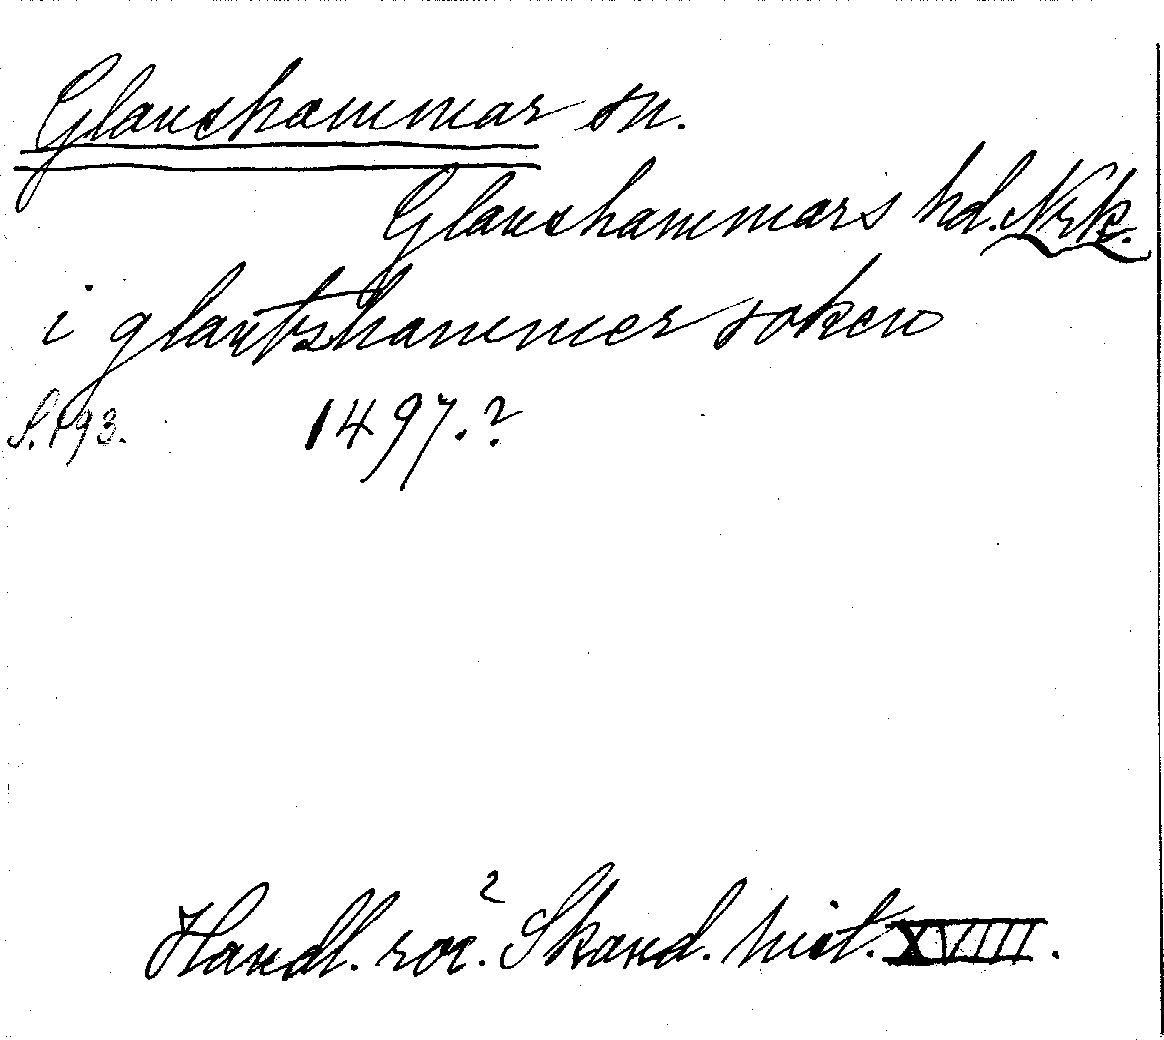 Glanshammar sn.
Glanshammars hd. Nrk.
i glantzhammer soken
S. 193. 1497.?
Handl. rör. Skand. hist. XVIII.